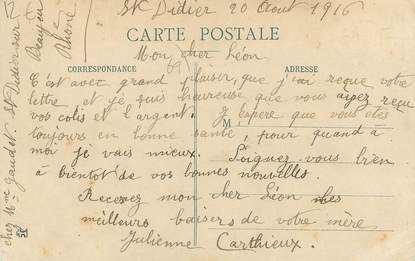 St Didier 20 Aout 1916
CARTE POSTALE
Mon cher Léon
CORRESPONDANCE
ADRESSE
C'est avec grand plaisir, que j'ai reçue votre
lettre et je suis heureuse que vous aiyez reçu
vos colis et l'argent. J'espère que vous êtes
M
toujours en bonne santé, pour quand à
moi je vais mieux. Soignez-vous bien
à bientot de vos bonnes nouvelles.
Recevez mon cher Léon les
meilleurs baisers de votre mère
Julienne Carthieux.
chez Mme Gaudet. St Didier-sur
Beaujeu
Rhône